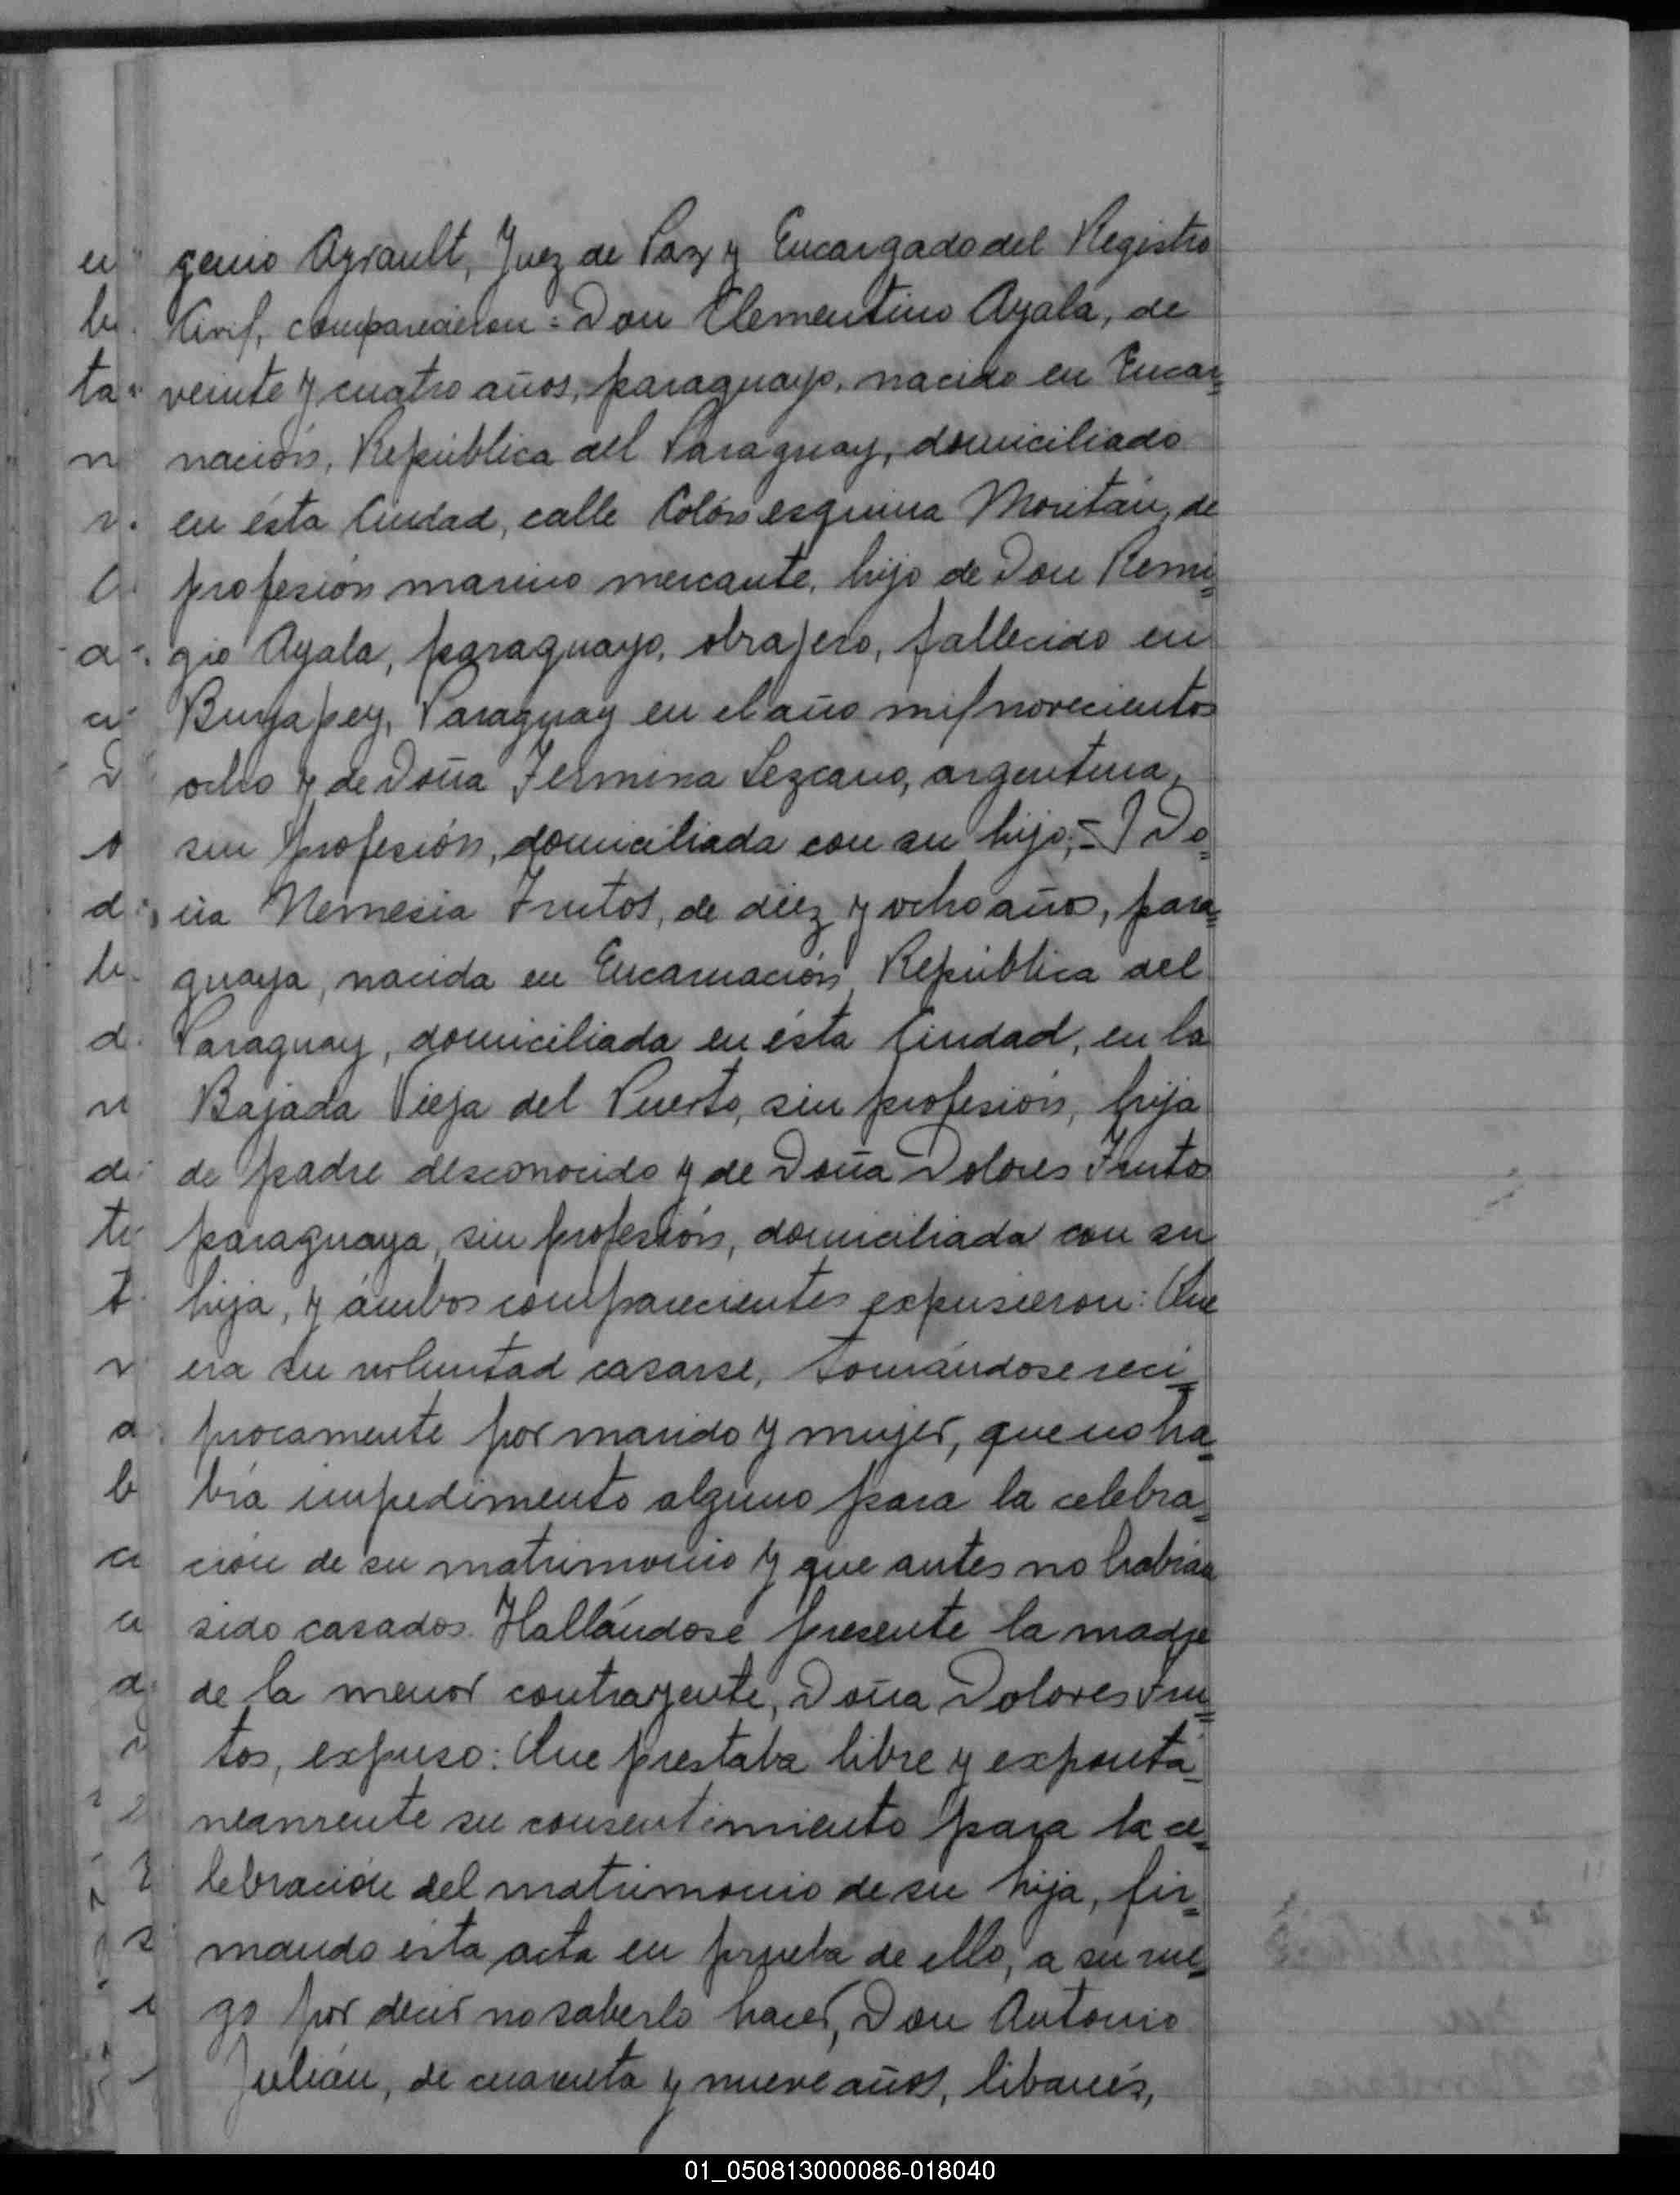 genio Ayrault, Juez de Paz y Encargado del Registro
Civil, comparecieron = Don Clementino Ayala, de
veinte y cuatro años, paraguayo, nacido en Encar=
nación, República del Paraguay, domiciliado
en ésta Ciudad, calle Colón esquina Moritán, de
profesión marino mercante, hijo de Don Remi=
gio Ayala, paraguayo, obrajero, fallecido en
Paraguay en el año mil novecientos
ocho y de Doña Fermina Lezcano, argentina,
sin profesión, domiciliada con su hijo; = Y Do=
ña Nemesia Frutos, de diez y ocho años, para=
guaya, nacida en Encarnación, República del
Paraguay, domiciliada en ésta Ciudad, en la
Bajada Vieja del Puerto, sin profesión, hija
de padre desconocido y de Doña Dolores Frutos
paraguaya, sin profesión, domiciliada con su
hija, y ámbos comparecientes expusieron: Que
era su voluntad casarse, tomándose recí=
procamente por marido y mujer, que no ha=
bía impedimento alguno para la celebra=
ción de su matrimonio y que antes no habían
sido casados. Hallándose presente la madre
de la menor contrayente, Doña Dolores Fru=
tos, expuso: Que prestaba libre y expontá=
neamente su consentimiento para la ce=
lebración del matrimonio de su hija, fir=
mando ésta acta en prueba de ello, a su rue=
go por decir no saberlo hacer, Don Antonio
Julián, de cuarenta y nueve años, libanés,
01_050813000086-018040